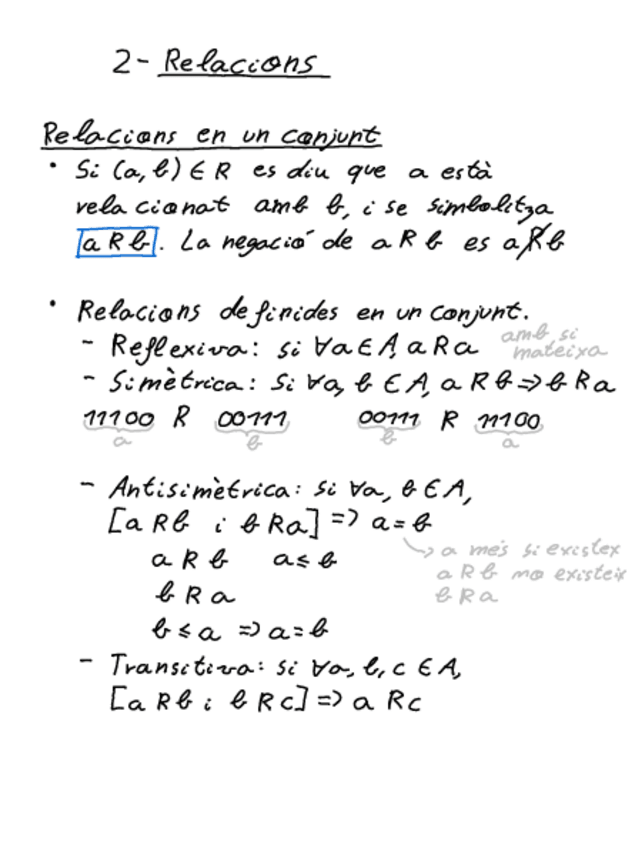 2- Relacions
Relacions en un conjunt
• Si (a, b) ∈ R es diu que a està
relacionat amb b, i se simbolitza
a R b. La negació de a R b es a R̸ b
• Relacions definides en un conjunt.
- Reflexiva: si ∀a ∈ A, a R a amb si
mateixa
- Simètrica: Si ∀a, b ∈ A, a R b => b R a
11100 R 00111 00111 R 11100
a b b a
- Antisimètrica: si ∀a, b ∈ A,
[a R b i b R a] => a = b
a R b a ≤ b → a més si existex
b R a a R b no existeix
b R a
b ≤ a => a = b
- Transitiva: si ∀a, b, c ∈ A,
[a R b i b R c] => a R c